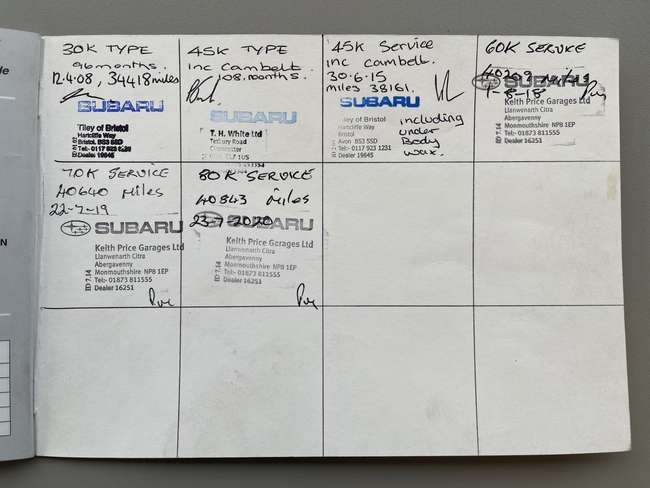 30K TYPE
96months.
12.4.08, 34418miles
SUBARU
Tiley of Bristol
Hartcliffe Way
Bristol. BS3 5SD
Tel:- 0117 923 1231
Dealer 19645
45K TYPE
inc Cambelt.
108.months.
SUBARU
T. H. White Ltd
Tetbury Road
45K Service
inc cambelt.
30-6-15
miles 38161.
SUBARU
Tiley of Bristol
Hartcliffe Way
Bristol
Avon BS3 5SD
Tel:- 0117 923 1231
Dealer 19645
including
under
Body
wax.
60K SERVICE
40269 miles
1-8-18
SUBARU
Keith Price Garages Ltd
Llanwenarth Citra
Abergavenny
Monmouthshire NP8 1EP
Tel:- 01873 811555
Dealer 16251
70K SERVICE
40640 MILES
22-7-19
SUBARU
Keith Price Garages Ltd
Llanwenarth Citra
Abergavenny
Monmouthshire NP8 1EP
Tel:- 01873 811555
Dealer 16251
ED 7.14
80K SERVICE
40843 MILES
23-7-2020
SUBARU
Keith Price Garages Ltd
Llanwenarth Citra
Abergavenny
Monmouthshire NP8 1EP
Tel:- 01873 811555
Dealer 16251
ED 7.14